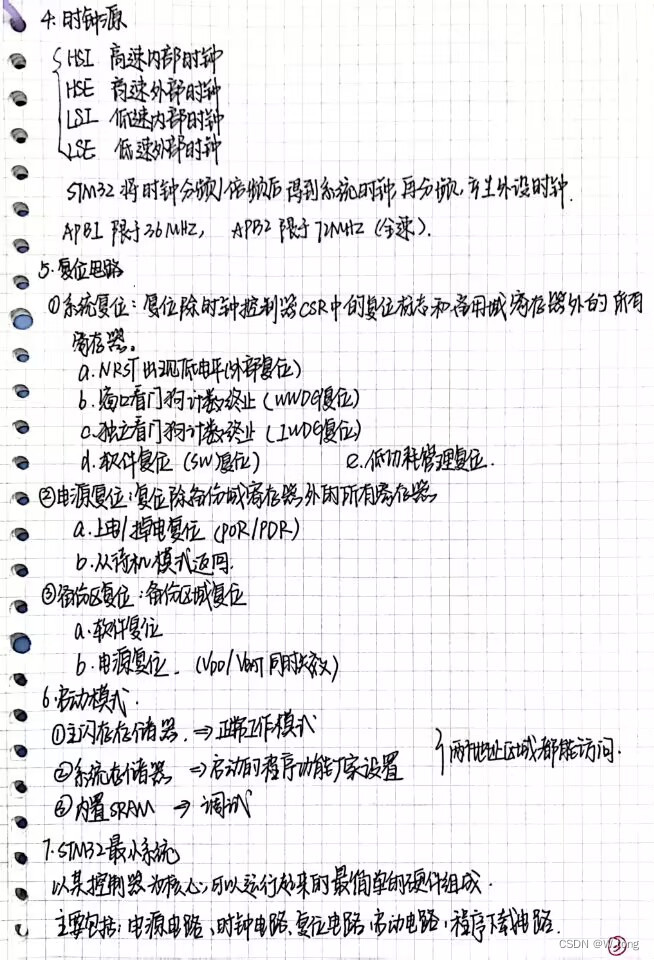 4. 时钟源
HSI 高速内部时钟
HSE 高速外部时钟
LSI 低速内部时钟
LSE 低速外部时钟
STM32将时钟分频/倍频后得到系统时钟,再分频,产生外设时钟.
APB1 限于36MHZ, APB2 限于72MHZ (全速).
5. 复位电路
①系统复位: 复位除时钟控制器CSR中的复位标志和备用域寄存器外的所有
寄存器。
a. NRST出现低电平(外部复位)
b. 窗口看门狗计数终止 (WWDG复位)
c. 独立看门狗计数终止 (IWDG复位)
d. 软件复位 (SW)复位) e. 低功耗管理复位.
②电源复位: 复位除备份域寄存器外的所有寄存器
a. 上电/掉电复位 (POR/PDR)
b. 从待机模式返回.
③备份区复位: 备份区域复位
a. 软件复位
b. 电源复位. (VDD/VBAT同时失效)
6. 启动模式.
①主闪存存储器. ⇒ 正常工作模式
②系统存储器 ⇒ 启动的程序功能厂家设置
} 两个地址区域都能访问.
③内置SRAM ⇒ 调试
7. STM32最小系统
以某控制器为核心,可以运行起来的最简单的硬件组成.
主要包括: 电源电路、时钟电路、复位电路、启动电路,程序下载电路.
CSDN @W
②